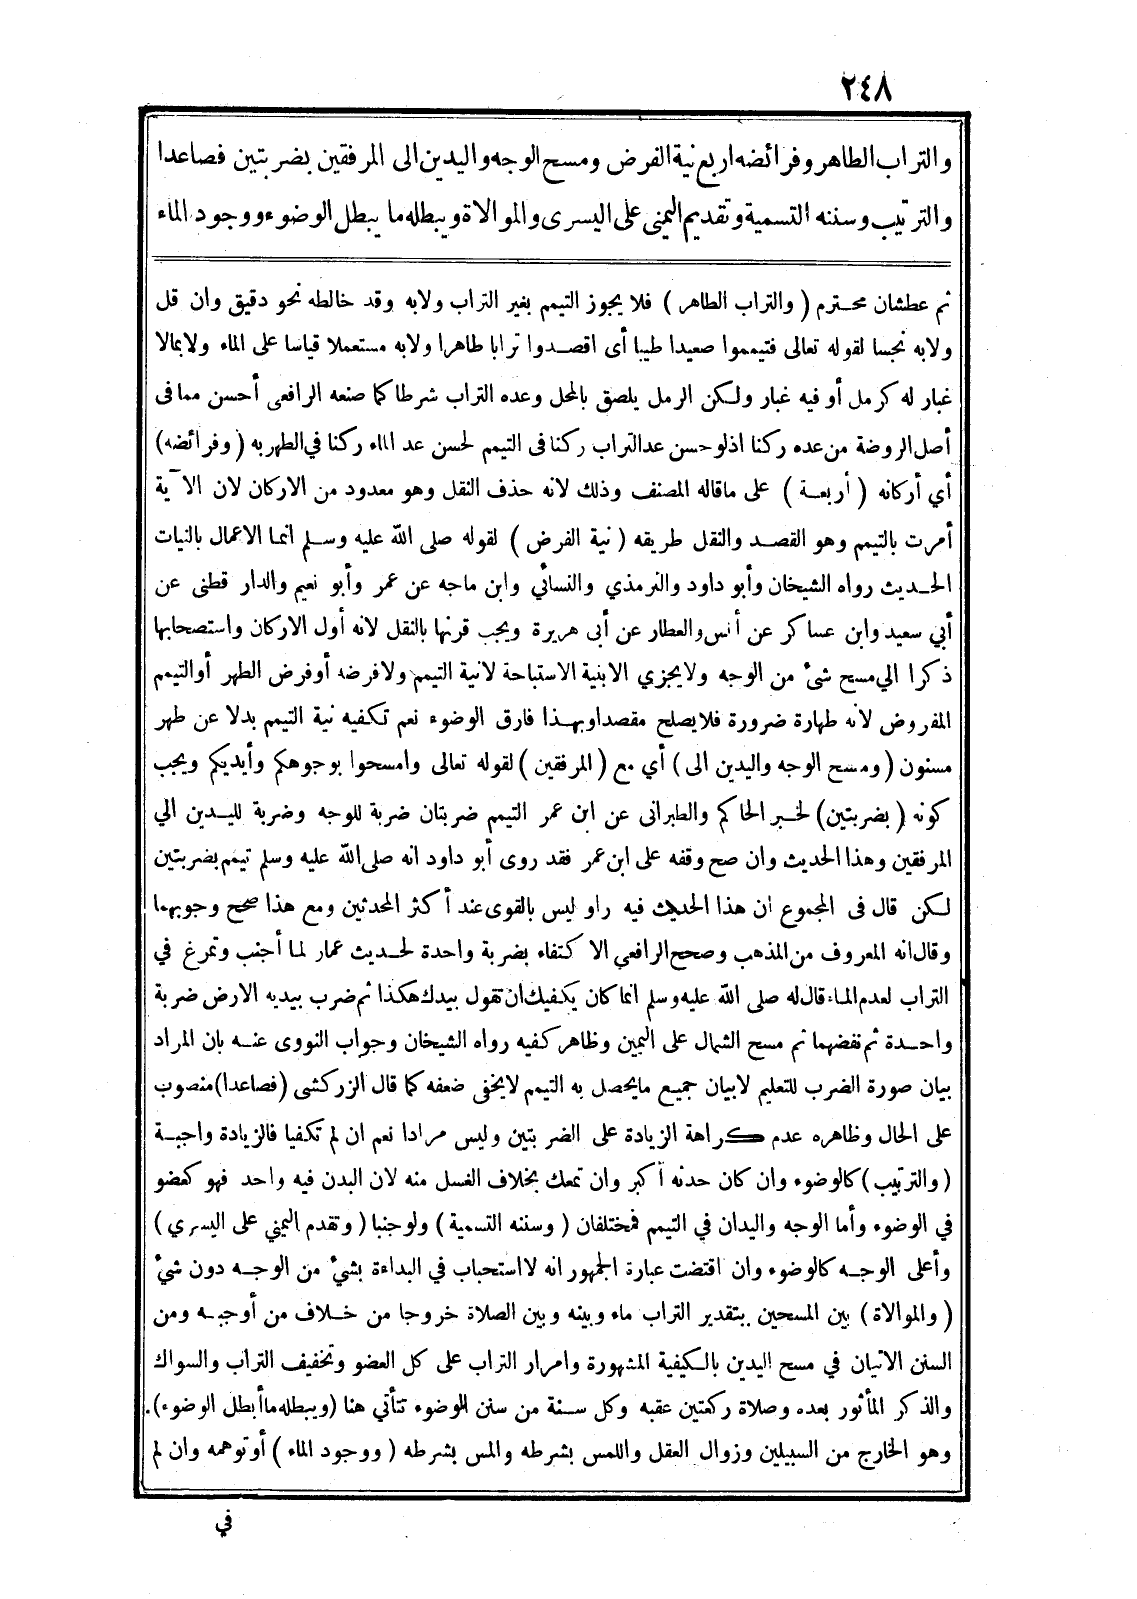 ٢٤٨
والتراب الطاهر وفرائضه اربع نية الفرض ومسح الوجه واليدين الى المرفقين بضربتين فصاعدا
والترتيب وسننه التسمية وتقديم اليمنى على اليسرى والموالاة ويبطله ما يبطل الوضوء ووجود الماء
ثم عطشان محترم ( والتراب الطاهر ) فلا يجوز التيمم بغير التراب ولابه وقد خالطه نحو دقيق وان قل
ولابه نجسا لقوله تعالى فتيمموا صعيدا طيبا أى اقصدوا ترابا طاهرا ولابه مستعملا قياسا على الماء ولابمالا
غبار له كرمل أو فيه غبار ولكن الرمل يلصق بالمحل وعده التراب شرطا كما صنعه الرافعى أحسن مما فى
أصل الروضة من عده ركنا اذلو حسن عد التراب ركنا فى التيمم لحسن عد الماء ركنا في الطهر به ( وفرائضه)
أي أركانه ( أربعة ) على ماقاله المصنف وذلك لانه حذف النقل وهو معدود من الاركان لان الآية
أمرت بالتيمم وهو القصد والنقل طريقه ( نية الفرض ) لقوله صلى الله عليه وسلم انما الاعمال بالنيات
الحديث رواه الشيخان وأبو داود والترمذي والنسائي وابن ماجه عن عمر وأبو نعيم والدار قطنى عن
أبي سعيد وابن عساكر عن أنس والعطار عن أبى هريرة ويجب قرنها بالنقل لانه أول الاركان واستصحابها
ذكرا الي مسح شئ من الوجه ولا يجزي الا بنية الاستباحة لانية التيمم ولا فرضه أو فرض الطهر أو التيمم
المفروض لانه طهارة ضرورة فلا يصلح مقصدا وبهذا فارق الوضوء نعم تكفيه نية التيمم بدلا عن طهر
مسنون ( ومسح الوجه واليدين الى ) أي مع ( المرفقين ) لقوله تعالى وامسحوا بوجوهكم وأيديكم ويجب
كونه ( بضربتين) لخبر الحاكم والطبرانى عن ابن عمر التيمم ضربتان ضربة للوجه وضربة لليدين الي
المرفقين وهذا الحديث وان صح وقفه على ابن عمر فقد روى أبو داود انه صلى الله عليه وسلم تيمم بضربتين
لكن قال فى المجموع ان هذا الحديث فيه راو ليس بالقوى عند أكثر المحدثين ومع هذا صحح وجوبهما
وقال انه المعروف من المذهب وصحح الرافعي الاكتفاء بضربة واحدة لحديث عمار لما أجنب وتمرغ في
التراب لعدم الماء قال له صلى الله عليه وسلم انما كان يكفيك ان تقول بيدك هكذا ثم ضرب بيديه الارض ضربة
واحدة ثم نفضهما ثم مسح الشمال على اليمين وظاهر كفيه رواه الشيخان وجواب النووى عنه بان المراد
بيان صورة الضرب للتعليم لا بيان جميع مايحصل به التيمم لايخفى ضعفه كما قال الزركشى (فصاعدا) منصوب
على الحال وظاهره عدم كراهة الزيادة على الضربتين وليس مرادا نعم ان لم تكفيا فالزيادة واجبة
( والترتيب ) كالوضوء وان كان حدثه أكبر وان تمعك بخلاف الغسل منه لان البدن فيه واحد فهو كعضو
في الوضوء وأما الوجه واليدان في التيمم فمختلفان ( وسننه التسمية ) ولو جنبا ( وتقدم اليمني على اليسري )
وأعلى الوجه كالوضوء وان اقتضت عبارة الجمهور انه لا استحباب في البداءة بشئ من الوجه دون شئ
( والموالاة ) بين المسحين بتقدير التراب ماء وبينه وبين الصلاة خروجا من خلاف من أوجبه ومن
السنن الاتيان في مسح اليدين بالكيفية المشهورة وامرار التراب على كل العضو وتخفيف التراب والسواك
والذكر المأثور بعده وصلاة ركعتين عقبه وكل سنة من سنن الوضوء تتأتي هنا ( ويبطله ماأبطل الوضوء ).
وهو الخارج من السبيلين وزوال العقل واللمس بشرطه والمس بشرطه ( ووجود الماء ) أو توهمه وان لم
في